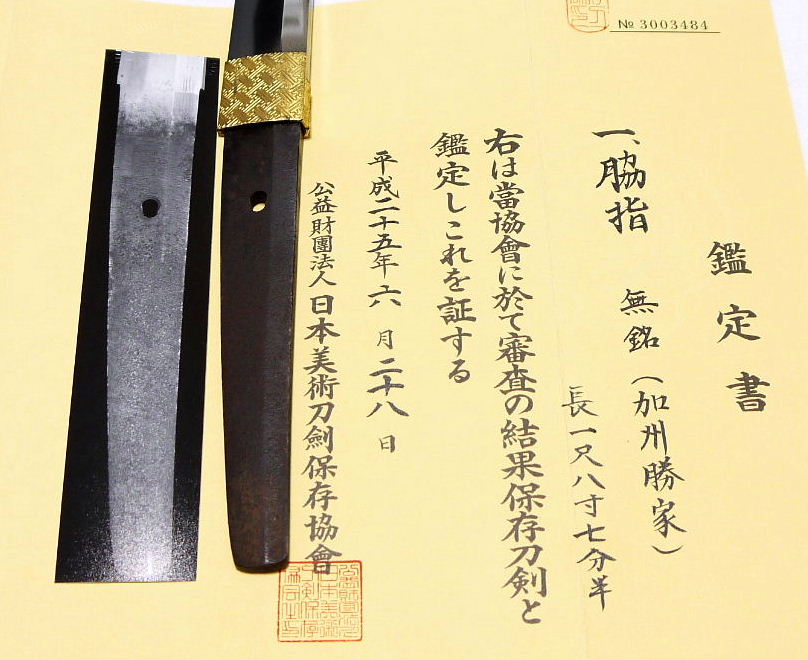 № 3003484
鑑定書
一、脇指 無銘（加州勝家）
長一尺八寸七分半
右は當協會に於て審査の結果保存刀剣と
鑑定しこれを証する
平成二十五年六月二十八日
公益財團法人日本美術刀劍保存協會